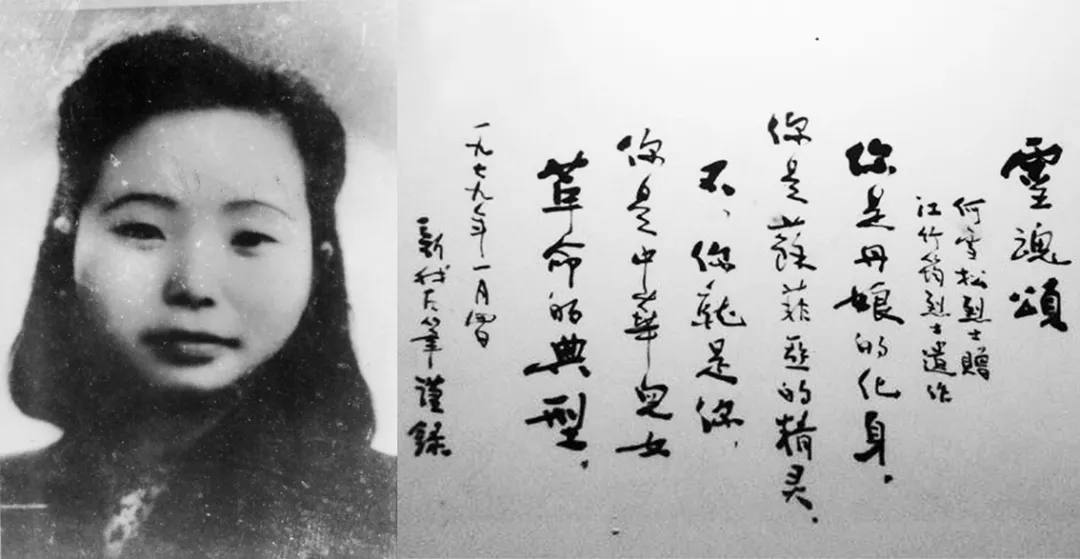 靈魂頌
何雪松烈士贈
江竹筠烈士遺作
你是丹娘的化身.
你是蘇菲亞的精灵.
不、你就是你,
你是中華兒女
革命的典型.
一九七九年一月四日
左筆謹錄